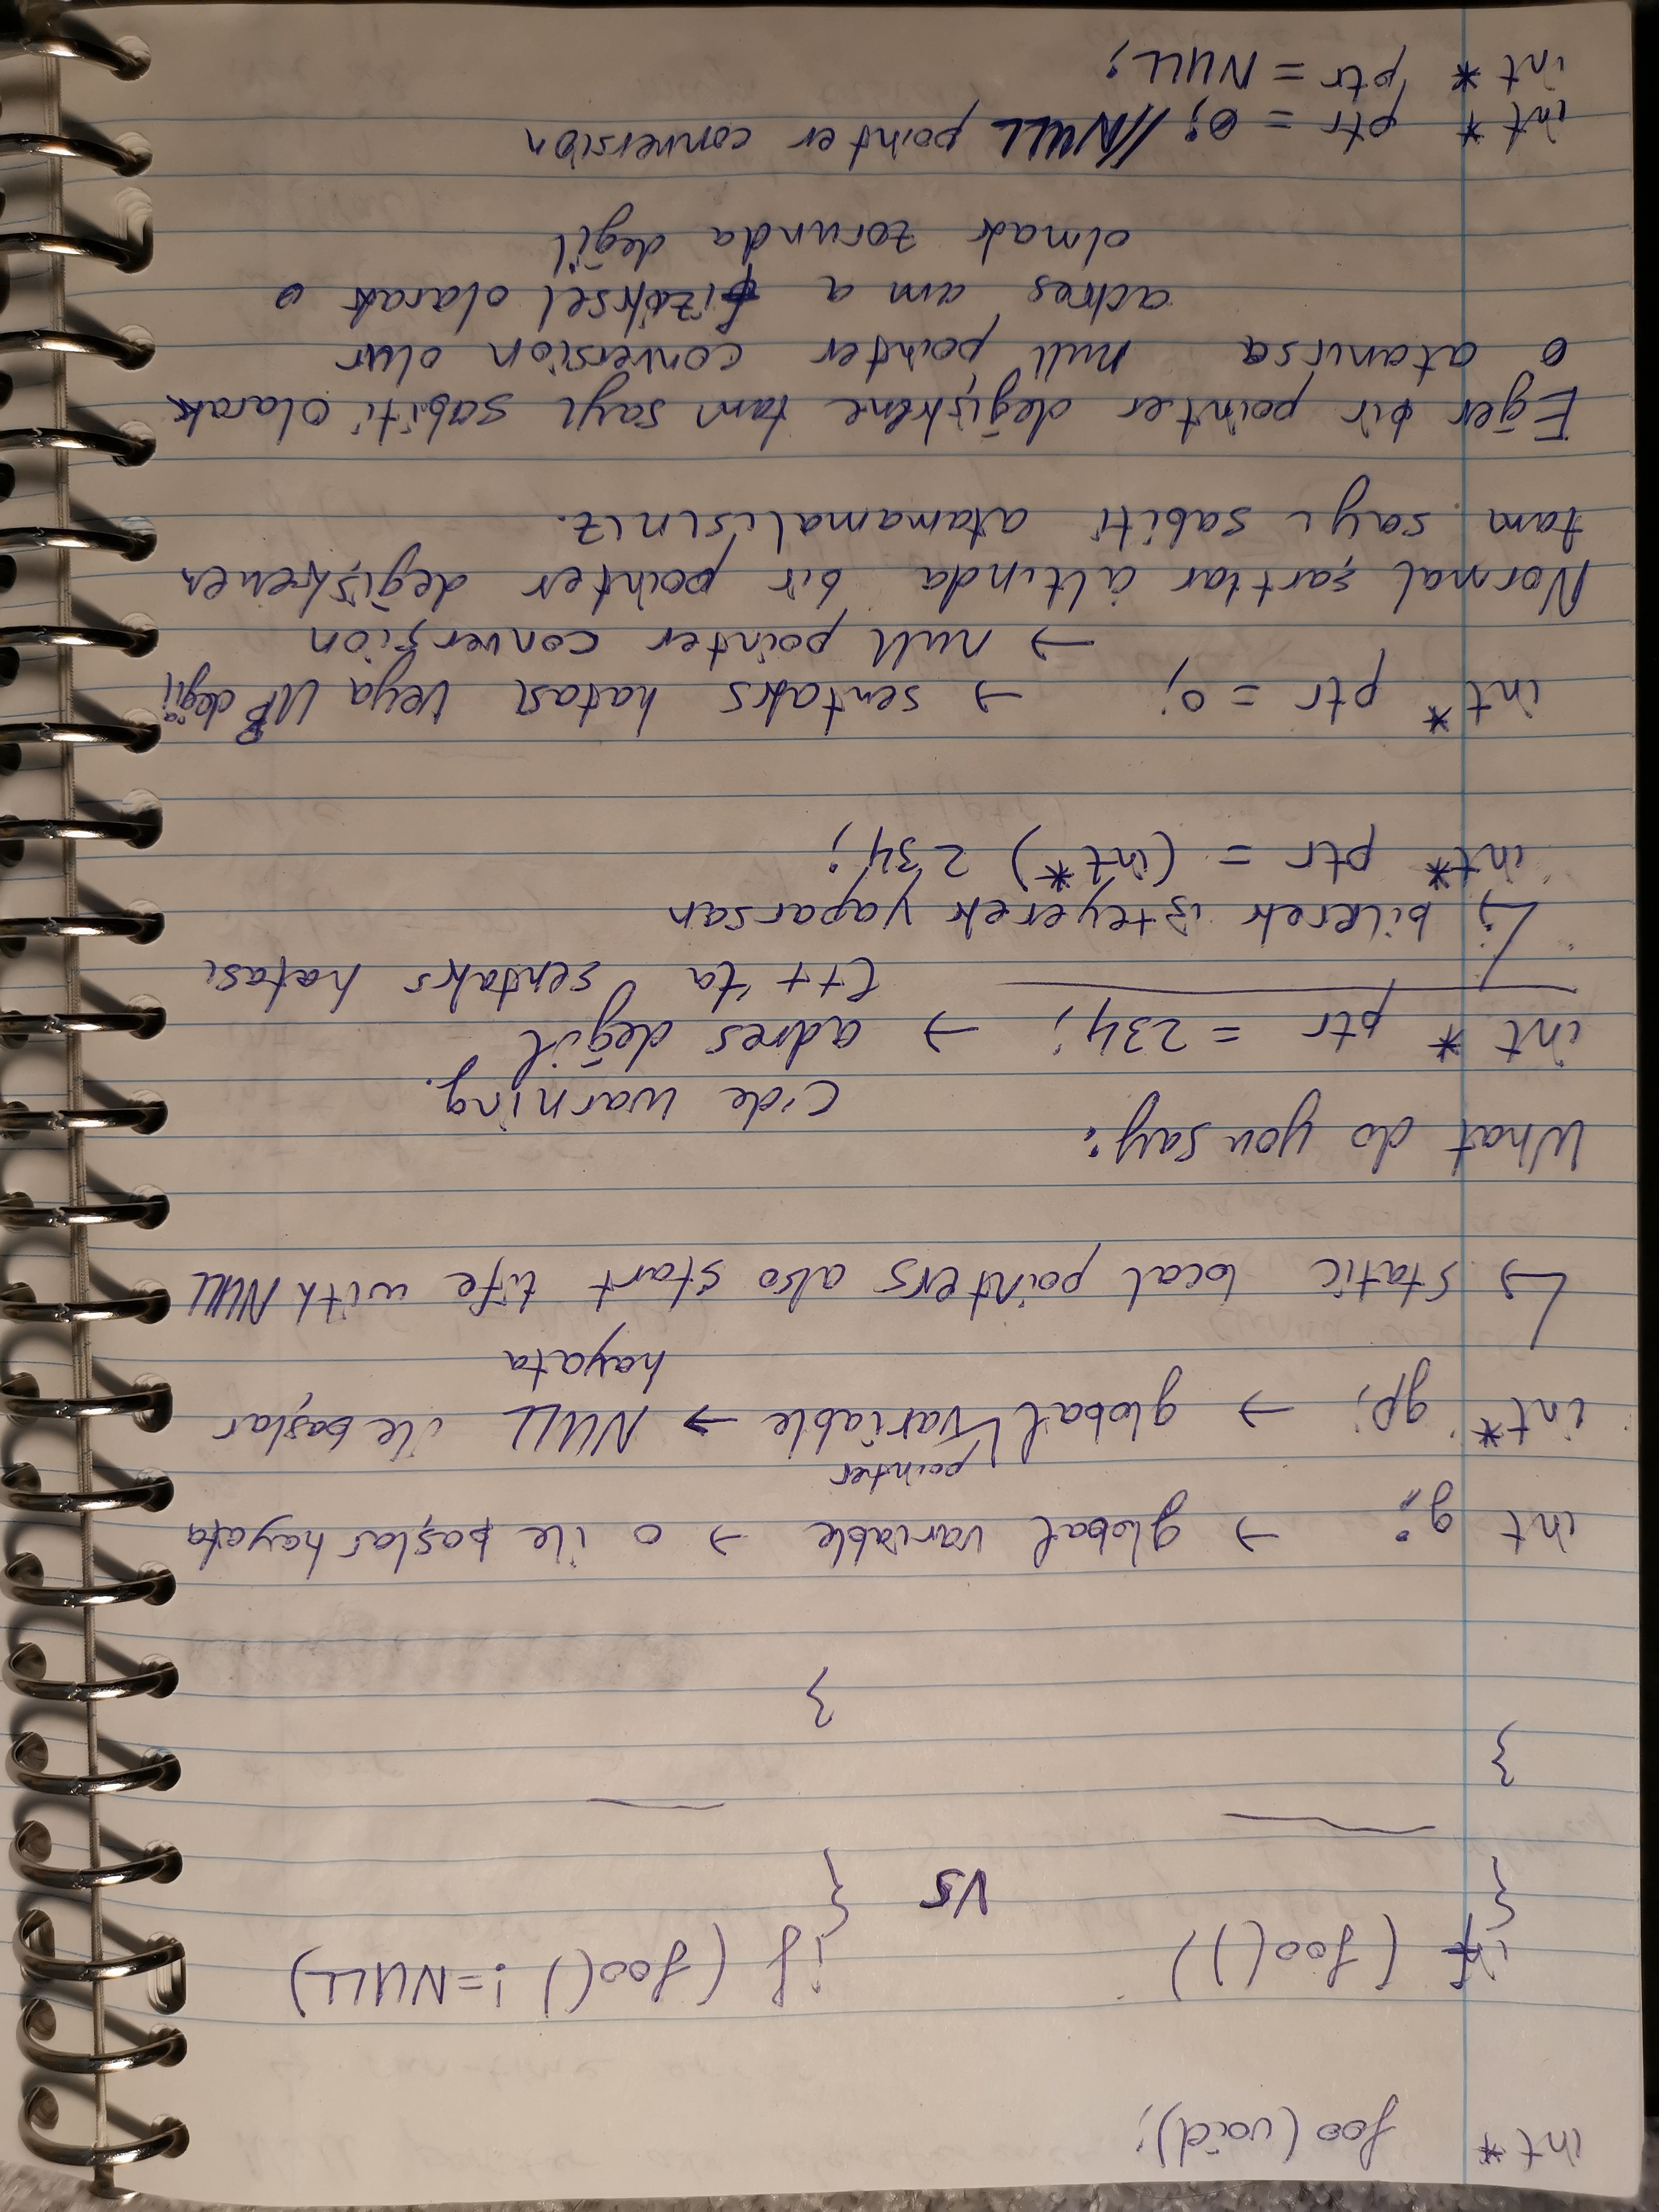 int* foo(void);
if (foo()) vs if (foo() != NULL)
{ {
}
}
int g; → global variable → 0 ile başlar hayata
int* gp; → global pointer variable → NULL ile başlar
hayata
↳ static local pointers also start life with NULL
What do you say:
C'de warning.
int * ptr = 234; → adres değil
C++'ta sentaks hatası
↳ bilerek isteyerek yaparsan
int* ptr = (int*) 234;
int* ptr = 0; → sentaks hatası veya UB değil
→ null pointer conversion
Normal şartlar altında bir pointer değişkenen
tam sayı sabiti atamamalısınız.
Eğer bir pointer değişkene tam sayı sabiti olarak
0 atanırsa null pointer conversion olur
adres ama fiziksel olarak 0
olmak zorunda değil
int * ptr = 0; //NULL pointer conversion
int * ptr = NULL;